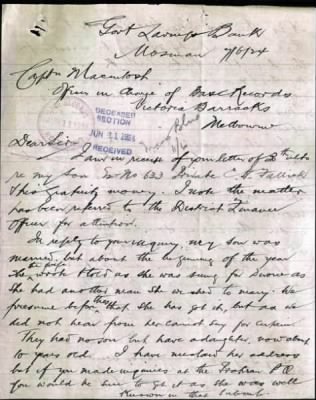 Govt Savings Bank
Mosman 7/6/24
Captn Macintosh
Officer in Charge of Base Records
Victoria Barracks
Melbourne
DECEASED
SECTION
JUN 11 1924
RECEIVED
Dear Sir
I am in receipt of your letter of
re my son Ex No 633 Private C. H.
War gratuity money. I note the matter
has been referred to the District Finance
Officer for attention.
In reply to your inquiry, my son was
married, but about the beginning of the year
she wrote & told us she was suing for divorce as
she had another man she wished to marry. We
presume before this that she has got it, but as we
did not hear from her cannot say for certain.
They had no son but have a daughter, now about
10 years old. I have mislaid her address
but if you made inquiries at the Prahran P.O
you would be sure to get it as she was well
known in that suburb.